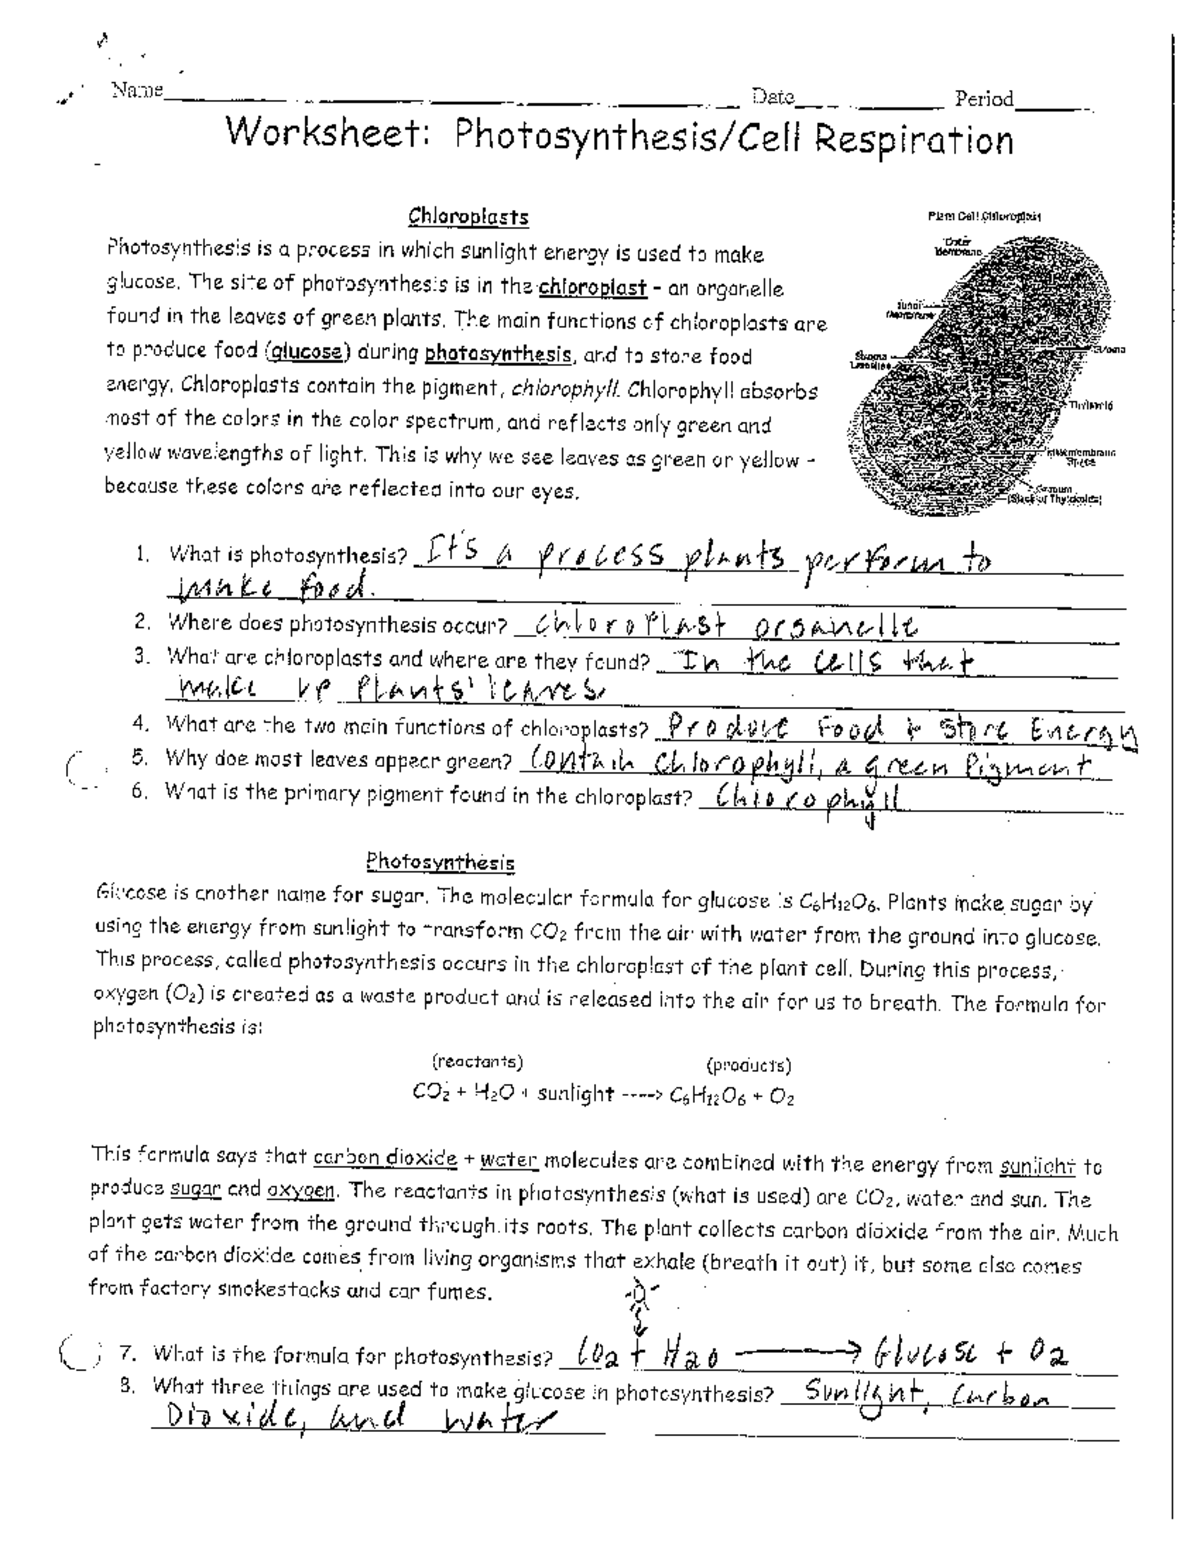 Name
Date
Period
Worksheet: Photosynthesis/Cell Respiration
Chloroplasts
Photosynthesis is a process in which sunlight energy is used to make
glucose. The site of photosynthesis is in the chloroplast - an organelle
found in the leaves of green plants. The main functions of chloroplasts are
to produce food (glucose) during photosynthesis, and to store food
energy. Chloroplasts contain the pigment, chlorophyll. Chlorophyll absorbs
most of the colors in the color spectrum, and reflects only green and
yellow wavelengths of light. This is why we see leaves as green or yellow -
because these colors are reflected into our eyes.
Plant Cell Chloroplast
Outer
Membrane
Inner
Membrane
Stroma
Lamellae
Stroma
Thylakoid
Intermembrane
Space
Granum
(Stack of Thylakoids)
1. What is photosynthesis? It's a process plants perform to
make food.
2. Where does photosynthesis occur? Chloroplast organelle
3. What are chloroplasts and where are they found? In the cells that
make up plants' leaves
4. What are the two main functions of chloroplasts? Produce Food + Store Energy
5. Why doe most leaves appear green? Contain Chlorophyll, a green Pigment
6. What is the primary pigment found in the chloroplast? Chlorophyll
Photosynthesis
Glucose is another name for sugar. The molecular formula for glucose is C6H12O6. Plants make sugar by
using the energy from sunlight to transform CO2 from the air with water from the ground into glucose.
This process, called photosynthesis occurs in the chloroplast of the plant cell. During this process,
oxygen (O2) is created as a waste product and is released into the air for us to breath. The formula for
photosynthesis is:
(reactants) (products)
CO2 + H2O + sunlight ----> C6H12O6 + O2
This formula says that carbon dioxide + water molecules are combined with the energy from sunlight to
produce sugar and oxygen. The reactants in photosynthesis (what is used) are CO2, water and sun. The
plant gets water from the ground through its roots. The plant collects carbon dioxide from the air. Much
of the carbon dioxide comes from living organisms that exhale (breath it out) it, but some also comes
from factory smokestacks and car fumes.
7. What is the formula for photosynthesis? CO2 + H2O → Glucose + O2
8. What three things are used to make glucose in photosynthesis? Sunlight, Carbon
Dioxide, and water